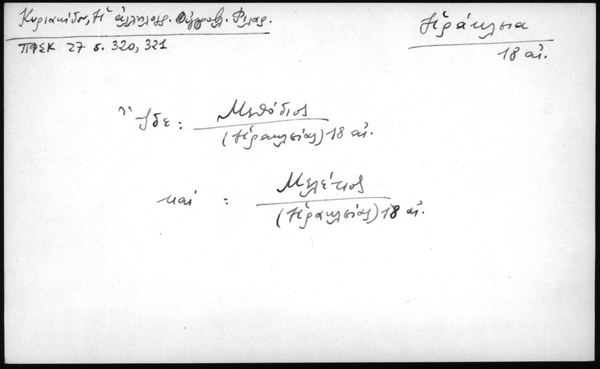 Κυριακίδου, Ἡ ἀλληλογρ. Οὐγγροβλ. Φιλαρ.
ΠΦΣΚ 27 σ. 320, 321
Ἡράκλεια
18 αἰ.
Ἴδε : Μεθόδιος
(Ἡρακλείας) 18 αἰ.
καί : Μελέτιος
(Ἡρακλείας) 18 αἰ.